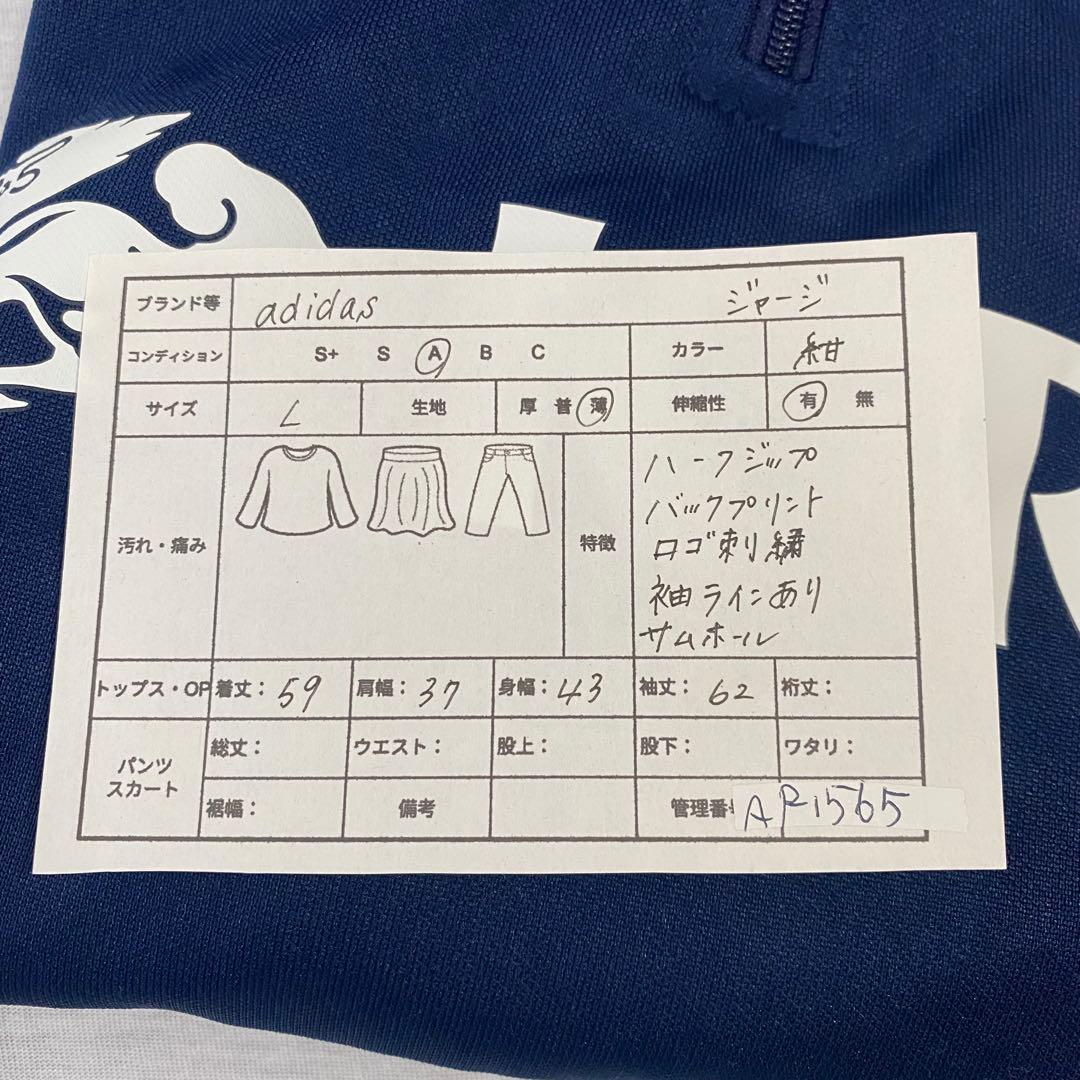 ブランド等 adidas ジャージ
コンディション S+ S A B C カラー 紺
サイズ L 生地 厚 普 薄 伸縮性 有 無
汚れ・痛み 特徴
ハーフジップ
バックプリント
ロゴ刺繍
袖ラインあり
サムホール
トップス・OP 着丈：59 肩幅：37 身幅：43 袖丈：62 裄丈：
パンツ スカート
総丈： ウエスト： 股上： 股下： ワタリ：
裾幅： 備考 管理番 AP1565